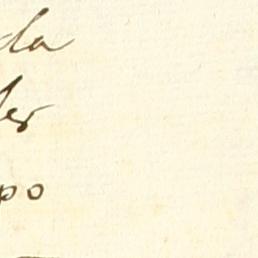 da
les
po